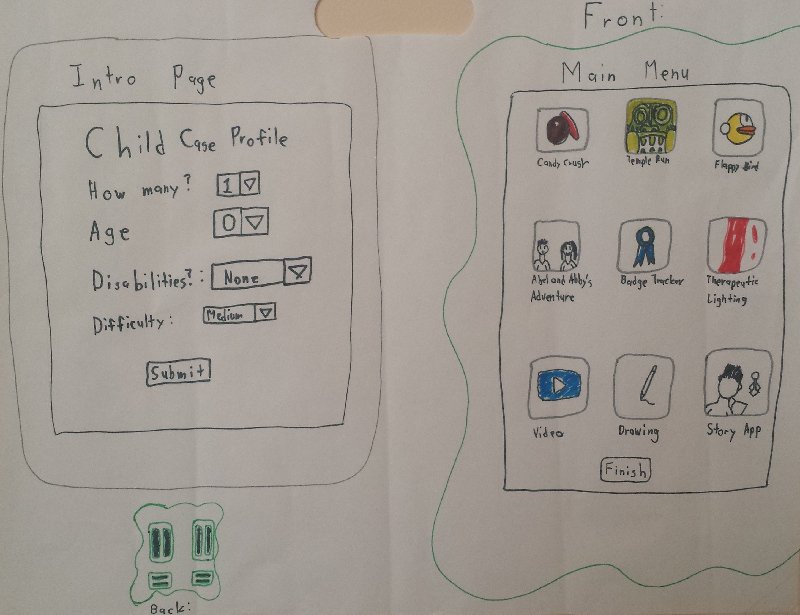 Intro Page
Child Case Profile
How many? 1
Age 0
Disabilities?: None
Difficulty: Medium
Submit
Back:
Front:
Main Menu
Candy Crush
Temple Run
Flappy Bird
Abel and Abby's
Adventure
Badge Tracker
Therapeutic
Lighting
Video
Drawing
Story App
Finish